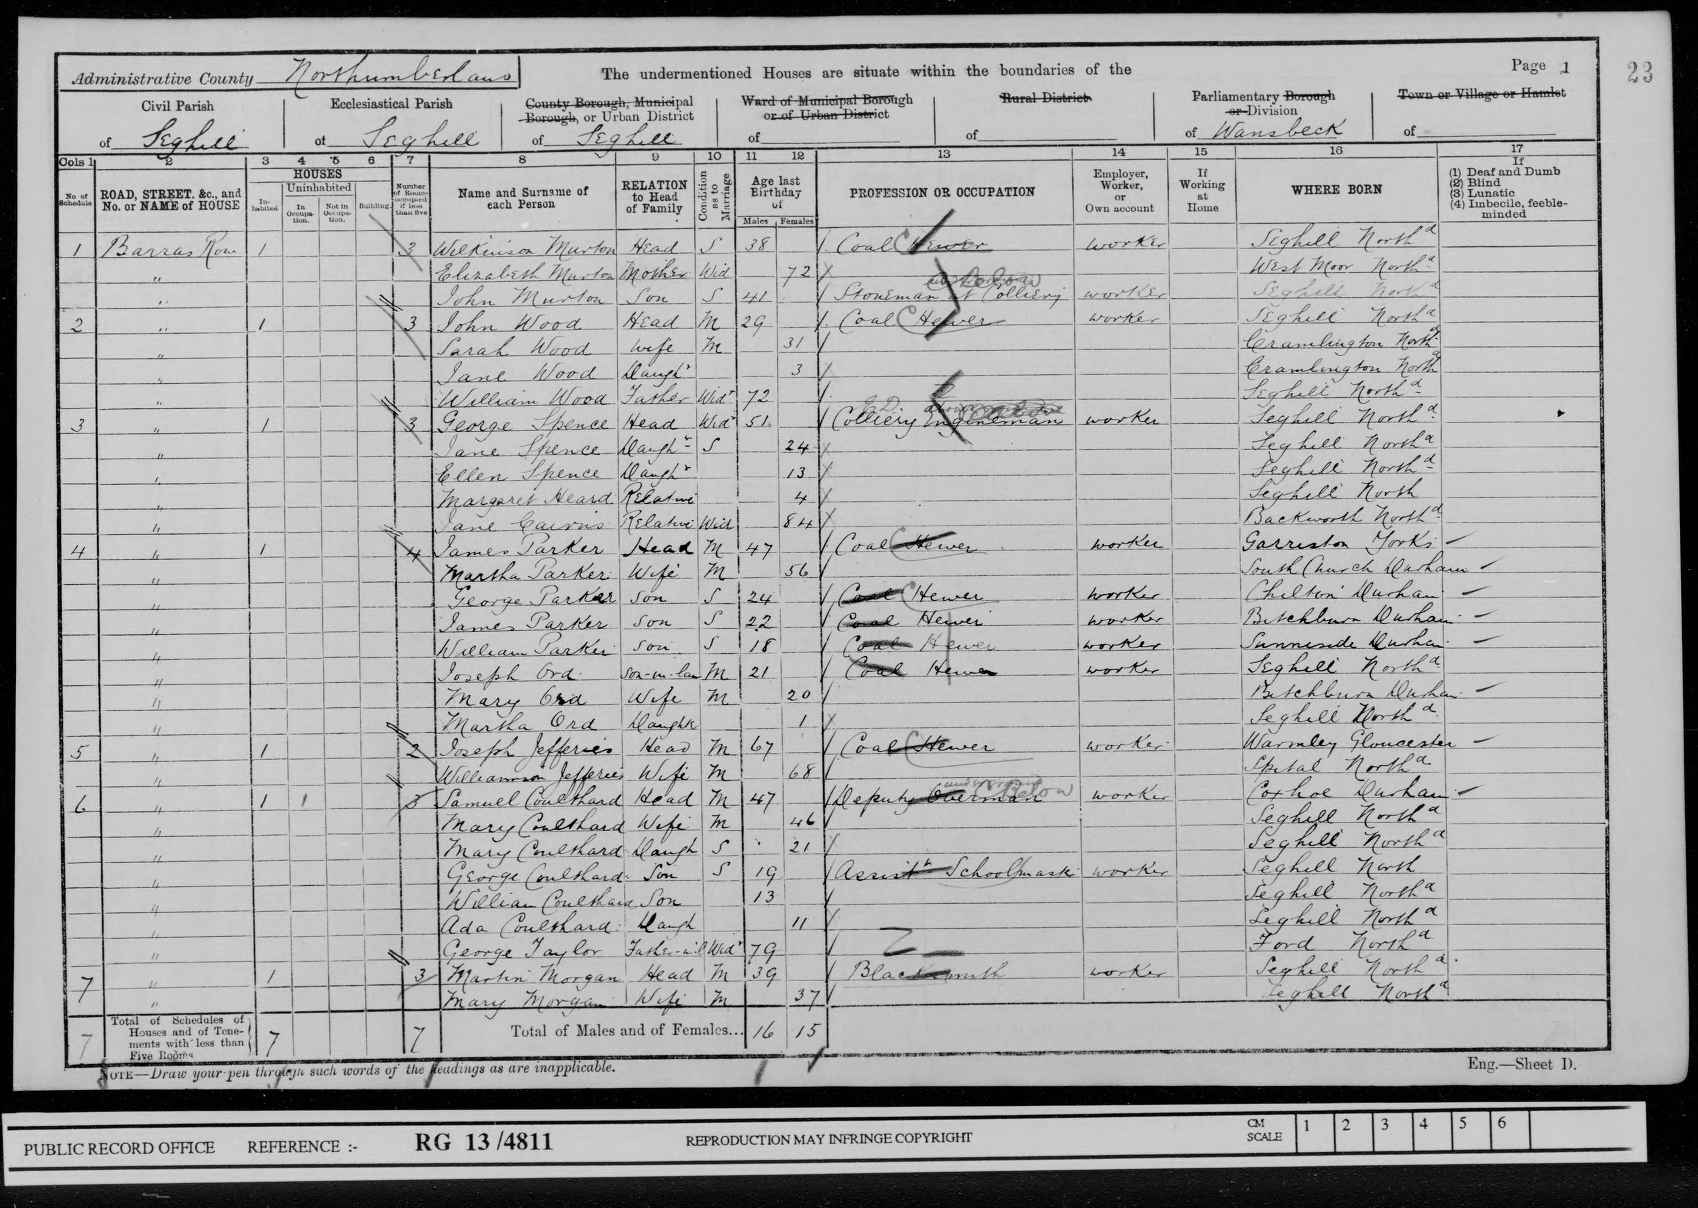 Administrative County Northumberland The undermentioned Houses are situate within the boundaries of the Page 1
23
Civil Parish of Seghill
Ecclesiastical Parish of Seghill
County Borough, Municipal Borough, or Urban District of Seghill
Ward of Municipal Borough or of Urban District of
Rural District of
Parliamentary Borough or Division of Wansbeck
Town or Village or Hamlet of
Cols 1 2 3 4 5 6 7 8 9 10 11 12 13 14 15 16 17
No. of Schedule
ROAD, STREET, &c., and No. or NAME of HOUSE
HOUSES
Inhabited
Uninhabited
In Occupation.
Not in Occupation.
Building.
Number of Rooms occupied if less than five
Name and Surname of each Person
RELATION to Head of Family
Condition as to Marriage
Age last Birthday of
Males Females
PROFESSION OR OCCUPATION
Employer, Worker, or Own account
If Working at Home
WHERE BORN
If
(1) Deaf and Dumb
(2) Blind
(3) Lunatic
(4) Imbecile, feeble-minded
1 Barras Row 1 3 Wilkinson Murton Head S 38 Coal Hewer worker Seghill Northd
" Elizabeth Murton Mother Wid 72 West Moor Northd
" John Murton Son S 41 Stoneman at Colliery below worker Seghill Northd
2 " 1 3 John Wood Head M 29 Coal Hewer worker Seghill Northd
" Sarah Wood Wife M 31 Cramlington Northd
" Jane Wood Daughr 3 Cramlington Northd
" William Wood Father Widr 72 Seghill Northd
3 " 1 3 George Spence Head Widr 51 Colliery Engineman worker Seghill Northd
" Jane Spence Daughr S 24 Seghill Northd
" Ellen Spence Daughr 13 Seghill Northd
" Margaret Heard Relative 4 Seghill North
" Jane Cairns Relative Wid 84 Backworth Northd
4 " 1 4 James Parker Head M 47 Coal Hewer worker Garriston Yorks
" Martha Parker Wife M 56 South Church Durham
" George Parker Son S 24 Coal Hewer worker Chilton Durham
" James Parker Son S 22 Coal Hewer worker Bitchburn Durham
" William Parker Son S 18 Coal Hewer worker Sunniside Durham
" Joseph Ord Son-in-law M 21 Coal Hewer worker Seghill Northd
" Mary Ord Wife M 20 Bitchburn Durham
" Martha Ord Daughtr 1 Seghill Northd
5 " 1 2 Joseph Jefferies Head M 67 Coal Hewer worker Warmley Gloucester
" Williamson Jefferies Wife M 68 Spital Northd
6 " 1 1 3 Samuel Coulthard Head M 47 Deputy Overman below worker Coxhoe Durham
" Mary Coulthard Wife M 46 Seghill Northd
" Mary Coulthard Daugh S 21 Seghill Northd
" George Coulthard Son S 19 Assistt Schoolmastr worker Seghill North
" William Coulthard Son 13 Seghill Northd
" Ada Coulthard Daugh 11 Seghill Northd
" George Taylor Father-in-l Widr 79 Ford Northd
7 " 1 3 Martin Morgan Head M 39 Blacksmith worker Seghill Northd
" Mary Morgan Wife M 37 Seghill Northd
7 Total of Schedules of Houses and of Tenements with less than Five Rooms 7 7 Total of Males and of Females... 16 15
NOTE—Draw your pen through such words of the headings as are inapplicable. Eng.—Sheet D.
PUBLIC RECORD OFFICE REFERENCE :- RG 13/4811 REPRODUCTION MAY INFRINGE COPYRIGHT CM SCALE 1 2 3 4 5 6